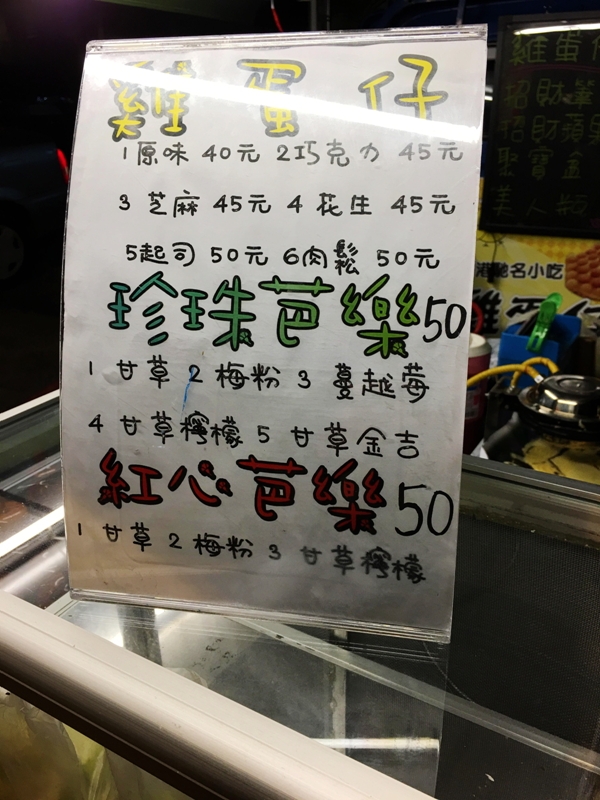 雞蛋仔
1原味 40元 2巧克力 45元
3 芝麻 45元 4 花生 45元
5起司 50元 6肉鬆 50元
珍珠芭樂50
1 甘草 2 梅粉 3 蔓越莓
4 甘草檸檬 5 甘草金吉
紅心芭樂50
1 甘草 2 梅粉 3 甘草檸檬
雞蛋仔
招財
招財蘋果
聚寶盆
美人瓶
港馳名小吃
雞蛋仔